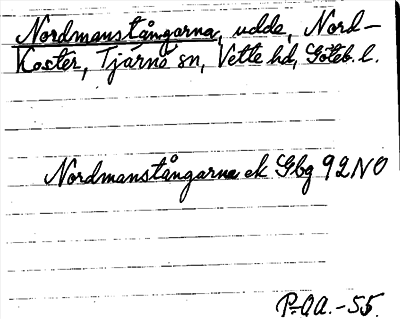 Nordmanstångarna, udde, Nord-
Koster, Tjärnö sn, Vette hd, Göteb. l.
Nordmanstångarna ek Gbg 92 NO
P.O.A. -55.